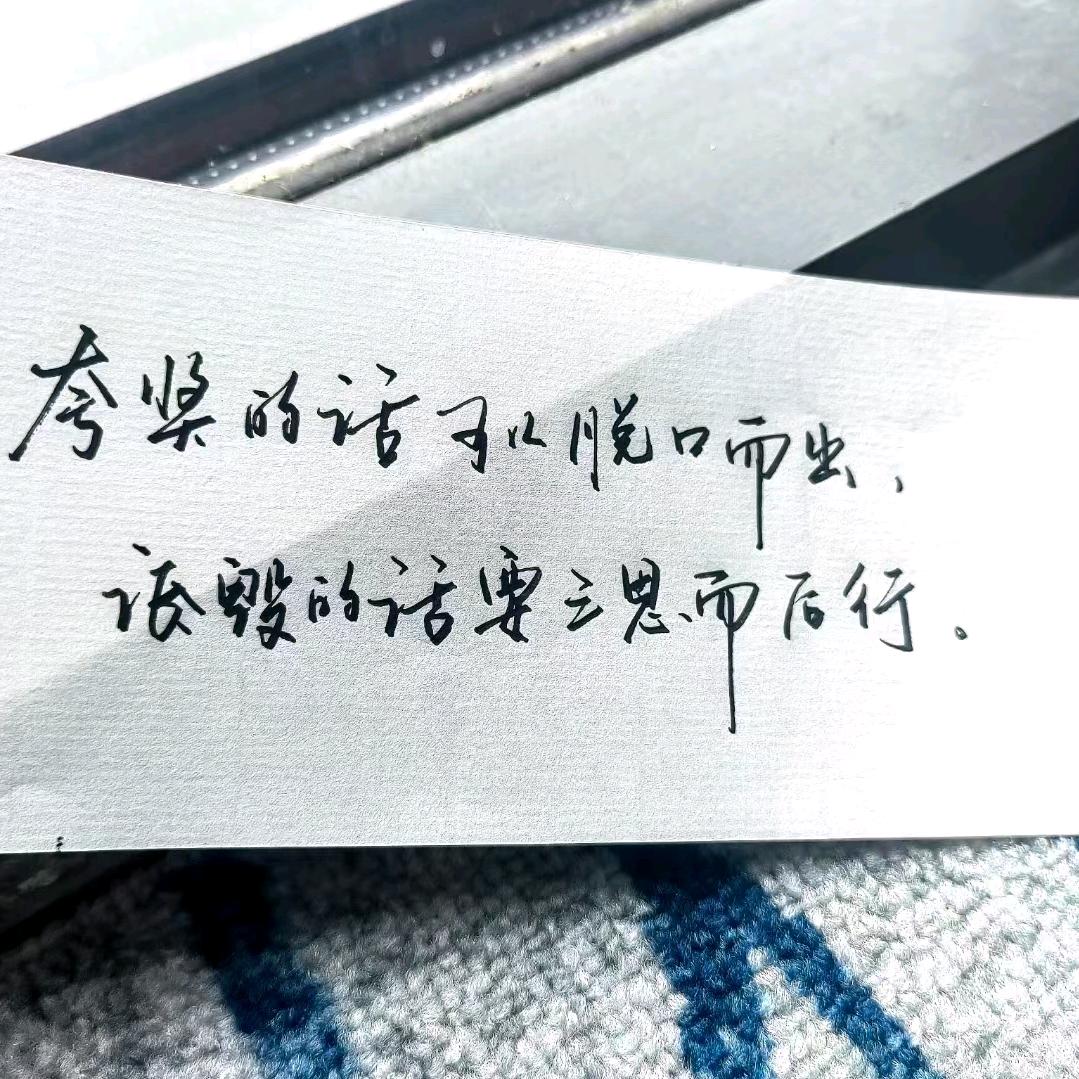 夸奖的话可以脱口而出、
诋毁的话要三思而后行。